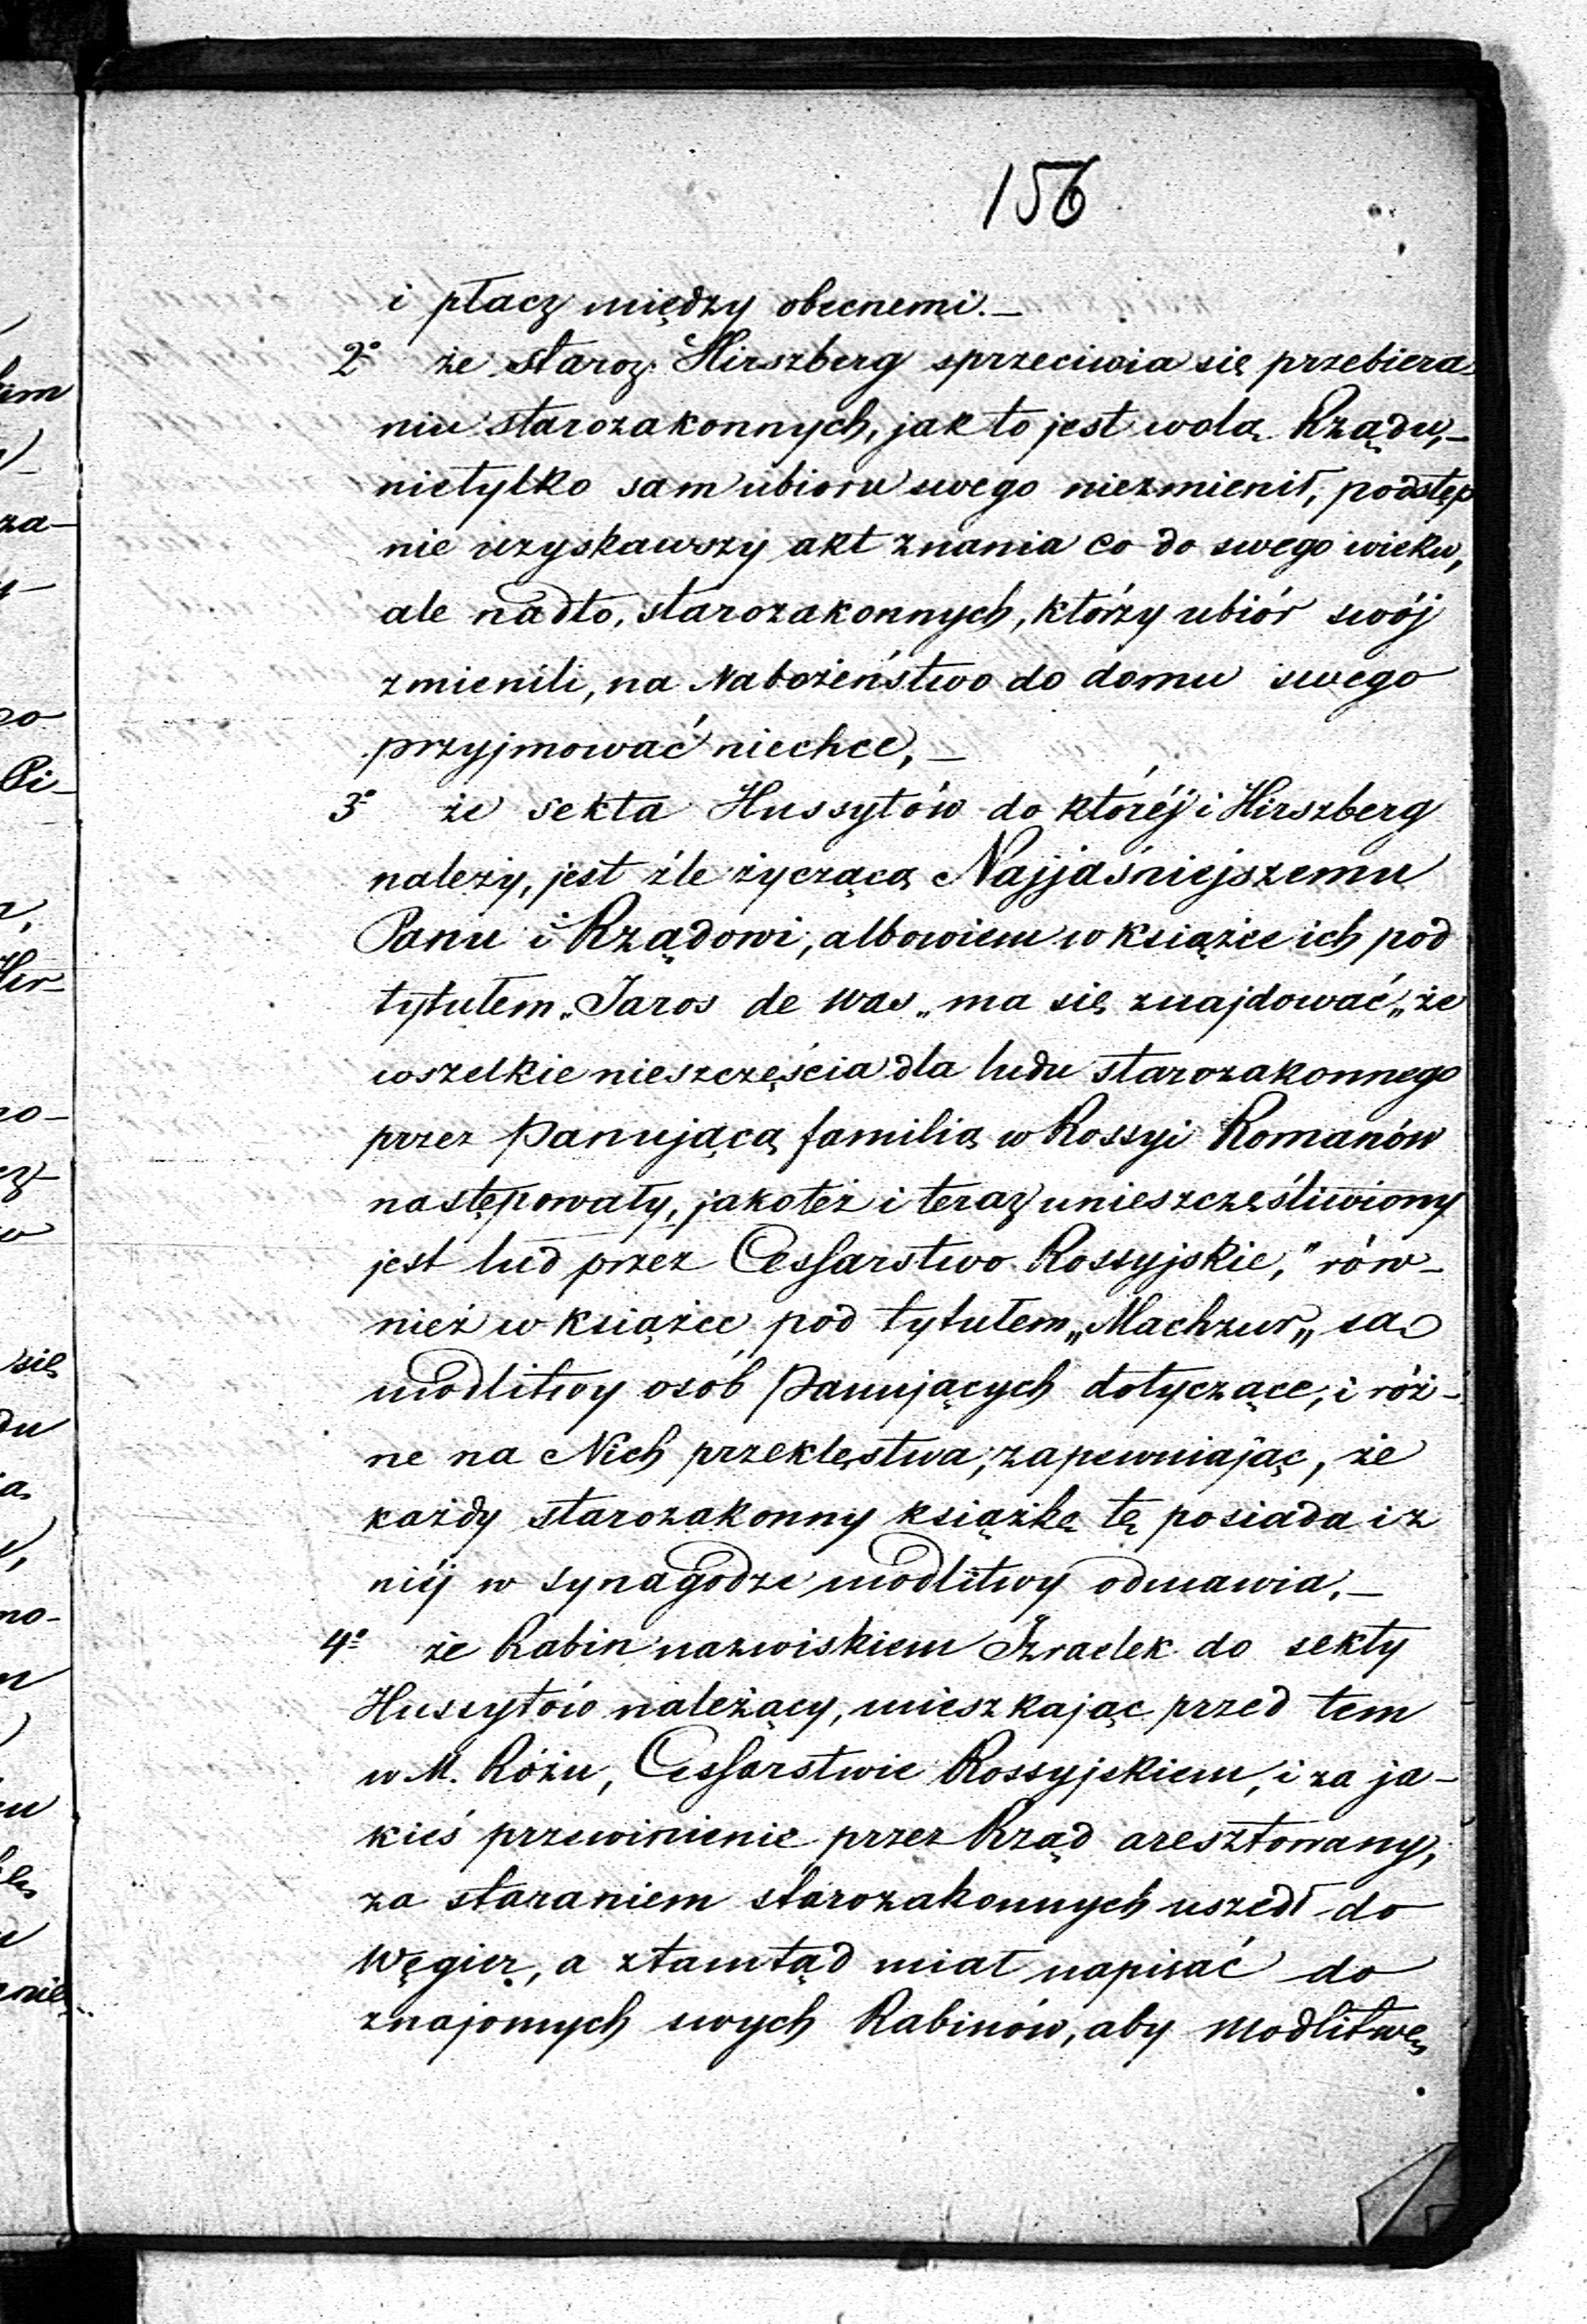 156
i płacz między obecnemi.—
2º że staroz. Hirszberg sprzeciwia się przebiera-
niu starozakonnych, jak to jest wolą Rządu,—
nietylko sam ubioru swego niezmienił, podstęp
nie uzyskawszy akt znania co do swego wieku,
ale nadto, starozakonnych, którzy ubiór swój
zmienili, na Nabożeństwo do domu swego
przyjmować niechce,—
3º że sekta Hussytów do któréj i Hirszberg
należy, jest źle życzącą Najjaśniejszemu
Panu i Rządowi, albowiem w książce ich pod
tytułem „Jaros de Was„ ma się znajdować „że
wszelkie nieszczęścia dla ludu starozakonnego
przez Panującą familią w Rossyi Romanów
następowały, jakoteż i teraz unieszczęśliwiony
jest lud przez Cessarstwo Rossyjskie,” rów-
nież w książce pod tytułem „Machzur„ są
modlitwy osób Panujących dotyczące, i róż-
ne na Nich przeklęstwa, zapewniając, że
każdy starozakonny książkę tę posiada i z
niéj w synagodze modlitwy odmawia,—
4º że Rabin nazwiskiem Izraelek do sekty
Hussytów należący, mieszkając przed tem
w M. Różu, Cessarstwie Rossyjskiem, i za ja-
kieś przewinienie przez Rząd aresztowany,
za staraniem starozakonnych uszedł do
Węgier, a ztamtąd miał napisać do
znajomych swych Rabinów, aby modlitwę